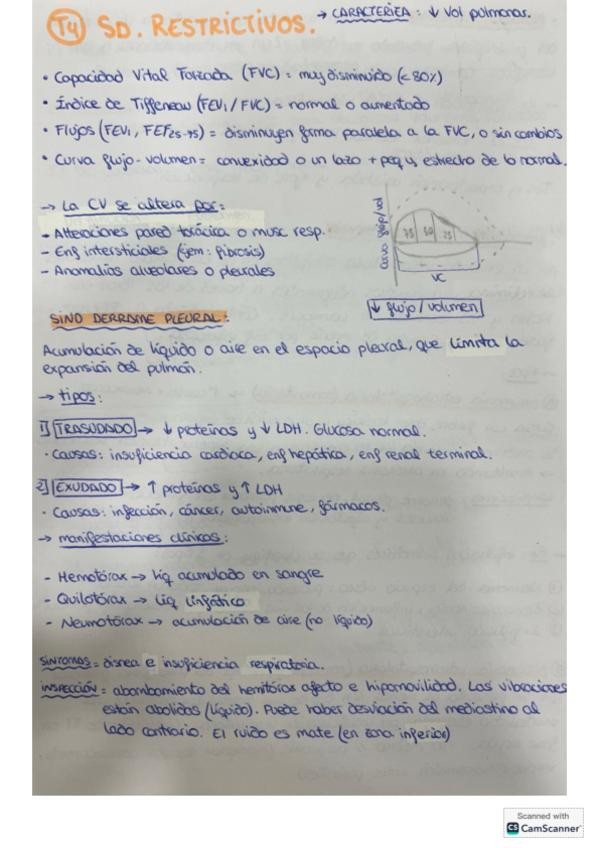 T4 SD. RESTRICTIVOS. → CARACTERICA: ↓ Vol pulmonar.
• Capacidad Vital Forzada (FVC) = muy disminuido (< 80%)
• Índice de Tiffeneau (FEV1 / FVC) = normal o aumentado
• Flujos (FEV1, FEF25-75) = disminuyen forma paralela a la FVC, o sin cambios
• Curva flujo-volumen = convexidad o un lazo + peq y estrecho de lo normal.
→ La CV se altera por:
- Alteraciones pared torácica o musc resp.
- Enf intersticiales (ejem: fibrosis)
- Anomalías alveolares o pleurales
Curva flujo/vol
75 50 25
VC
↓ flujo / volumen
SIND DERRAME PLEURAL:
Acumulación de líquido o aire en el espacio pleural, que limita la
expansión del pulmón.
→ tipos:
1) TRASUDADO → ↓ proteínas y ↓ LDH. Glucosa normal.
· Causas: insuficiencia cardiaca, enf hepática, enf renal terminal.
2) EXUDADO → ↑ proteínas y ↑ LDH
· Causas: infección, cáncer, autoinmune, fármacos.
→ manifestaciones clínicas:
- Hemotórax → liq acumulado en sangre
- Quilotórax → Liq Linfático
- Neumotórax → acumulación de aire (no líquido)
SÍNTOMAS = disnea e insuficiencia respiratoria.
INSPECCIÓN = abombamiento del hemitórax afecto e hipomovilidad. Las vibraciones
están abolidas (líquido). Puede haber desviación del mediastino al
lado contrario. El ruido es mate (en zona inferior)
Scanned with
CS CamScanner